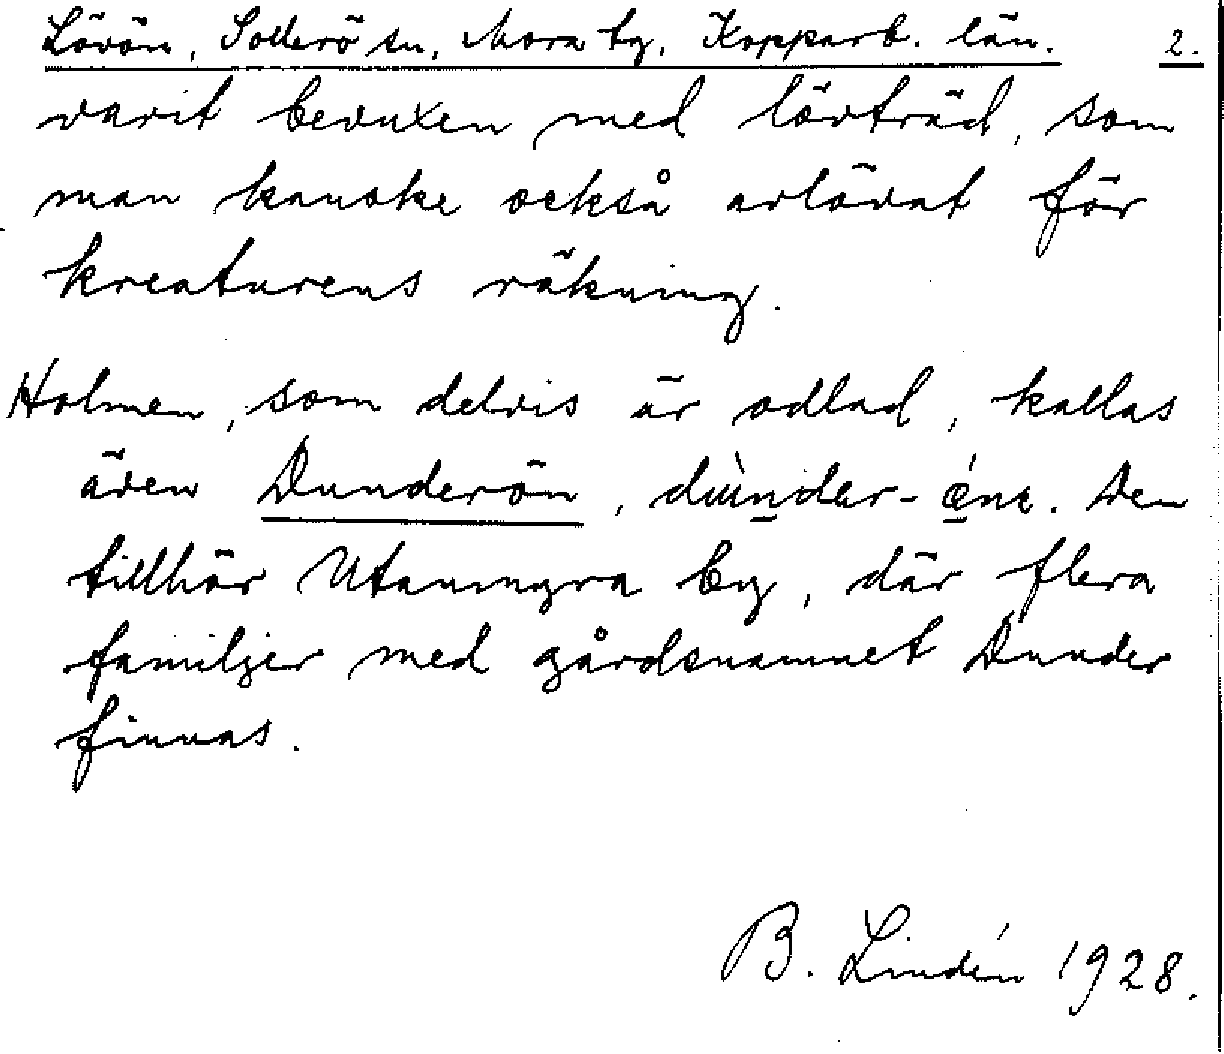 Lövön, Sollerö sn, Mora tg, Kopparb. län. 2.
varit bevuxen med lövträd, som
man kanske också avlövat för
kreaturens räkning.
Holmen, som delvis är odlad, kallas
även Dunderön, Den
tillhör Utanmyra by, där flera
familjer med gårdsnamnet Dunder
finnas.
B. Lindén 1928.